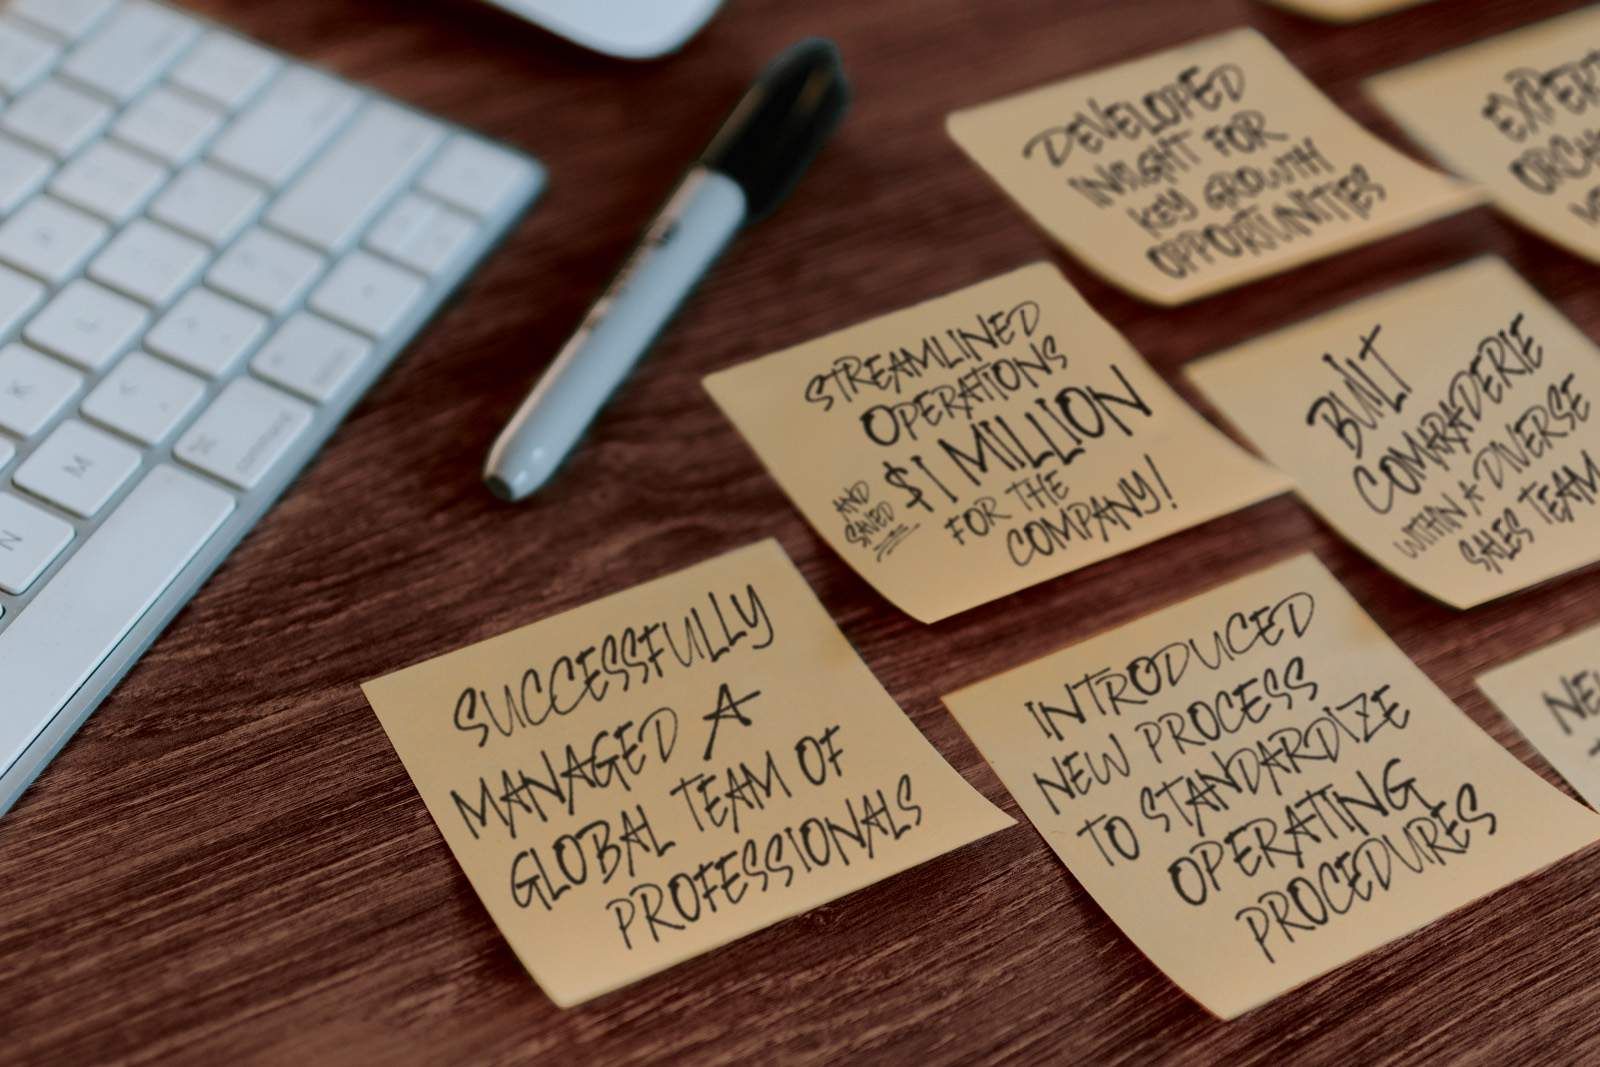 DEVELOPED
INSIGHT FOR
KEY GROWTH
OPPORTUNITIES
STREAMLINED
OPERATIONS
AND
SAVED
$1 MILLION
FOR THE
COMPANY!
BUILT
COMARADERIE
WITHIN A DIVERSE
SALES TEAM
SUCCESSFULLY
MANAGED A
GLOBAL TEAM OF
PROFESSIONALS
INTRODUCED
NEW PROCESS
TO STANDARDIZE
OPERATING
PROCEDURES
K
M
N
command